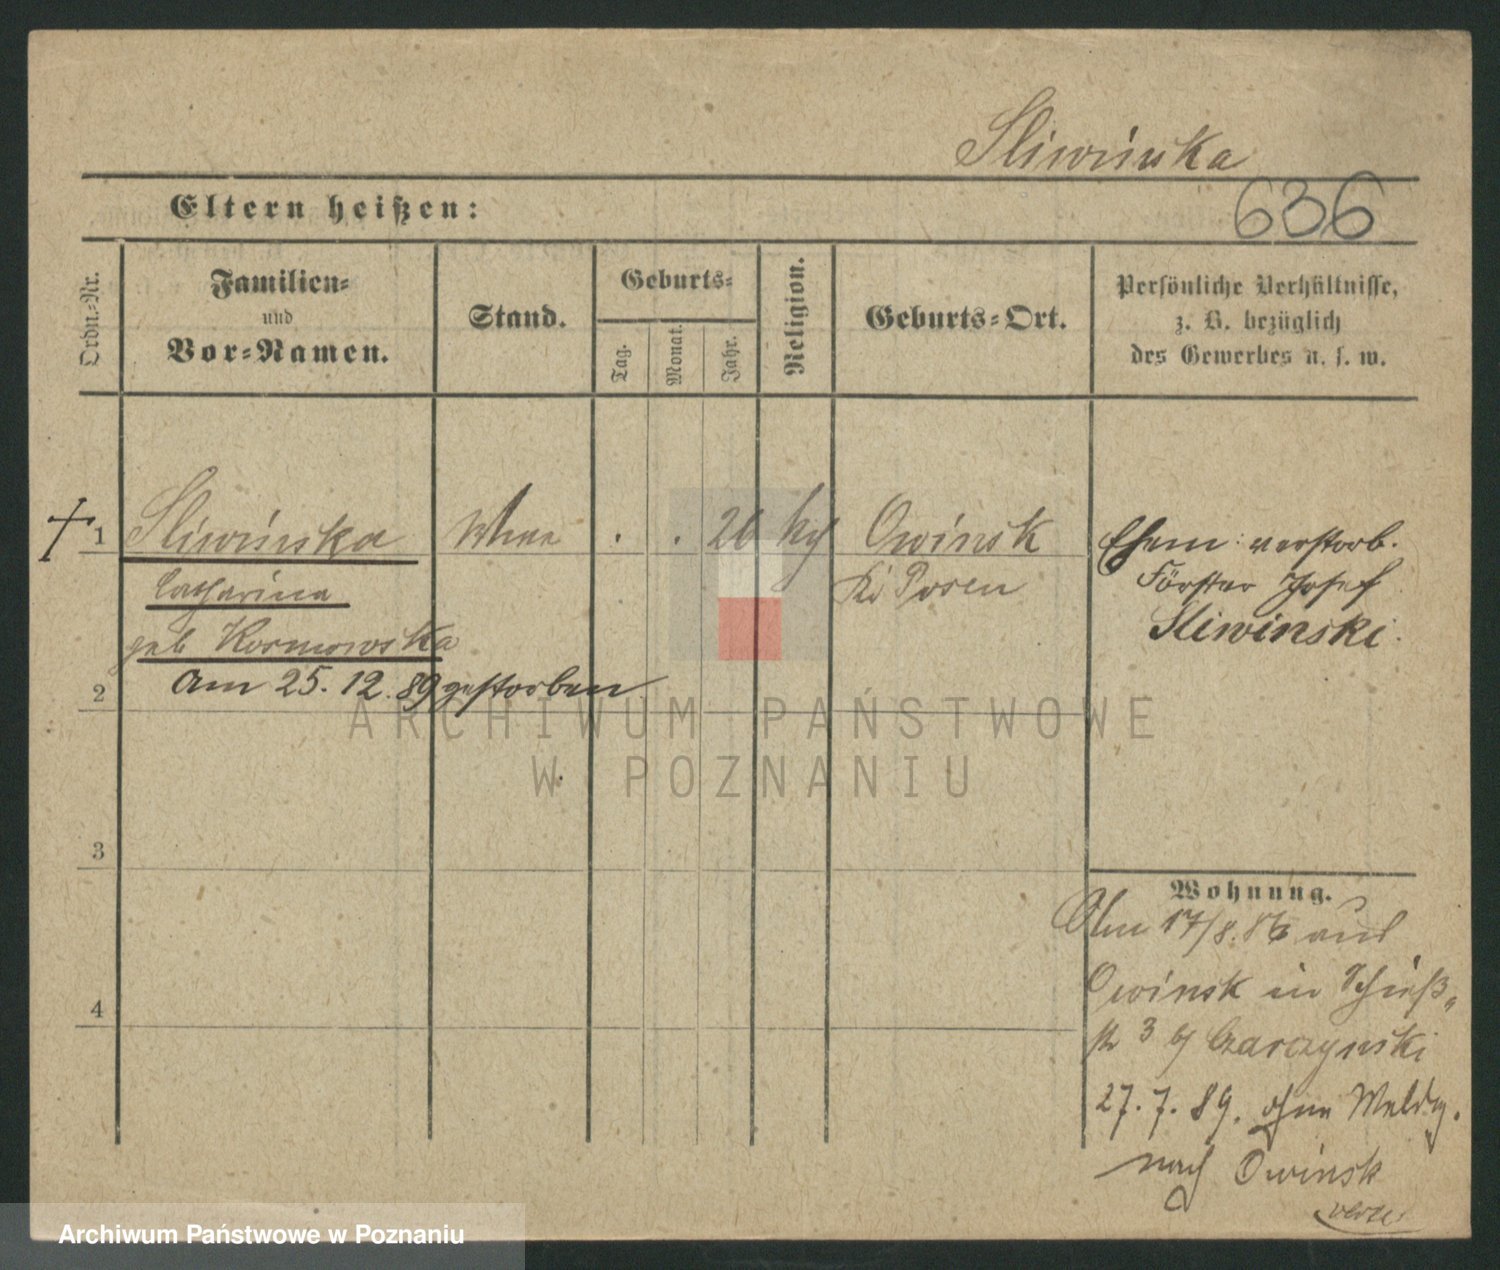 Sliwinska
636
Eltern heißen:
Ordn.-Nr.
Familien-
und
Vor-Namen.
Stand.
Geburts-
Tag.
Monat.
Jahr.
Religion.
Geburts-Ort.
Persönliche Verhältnisse,
z. B. bezüglich
des Gewerbes u. s. w.
1
Sliwinska
Wwe
. . 26
Owinsk
Catharina
Kr Posen
geb Kosmowska
Am 25. 12. 89 gestorben
Ehem: verstorb.
Förster Josef
Sliwinski.
2
3
4
Wohnung.
Am 17/8. 86 aus
Owinsk in Schieß-
str 3 b/ Czarczynski
27. 7. 89. ohne Meldg.
nach Owinsk
ARCHIWUM PAŃSTWOWE
W POZNANIU
Archiwum Państwowe w Poznaniu